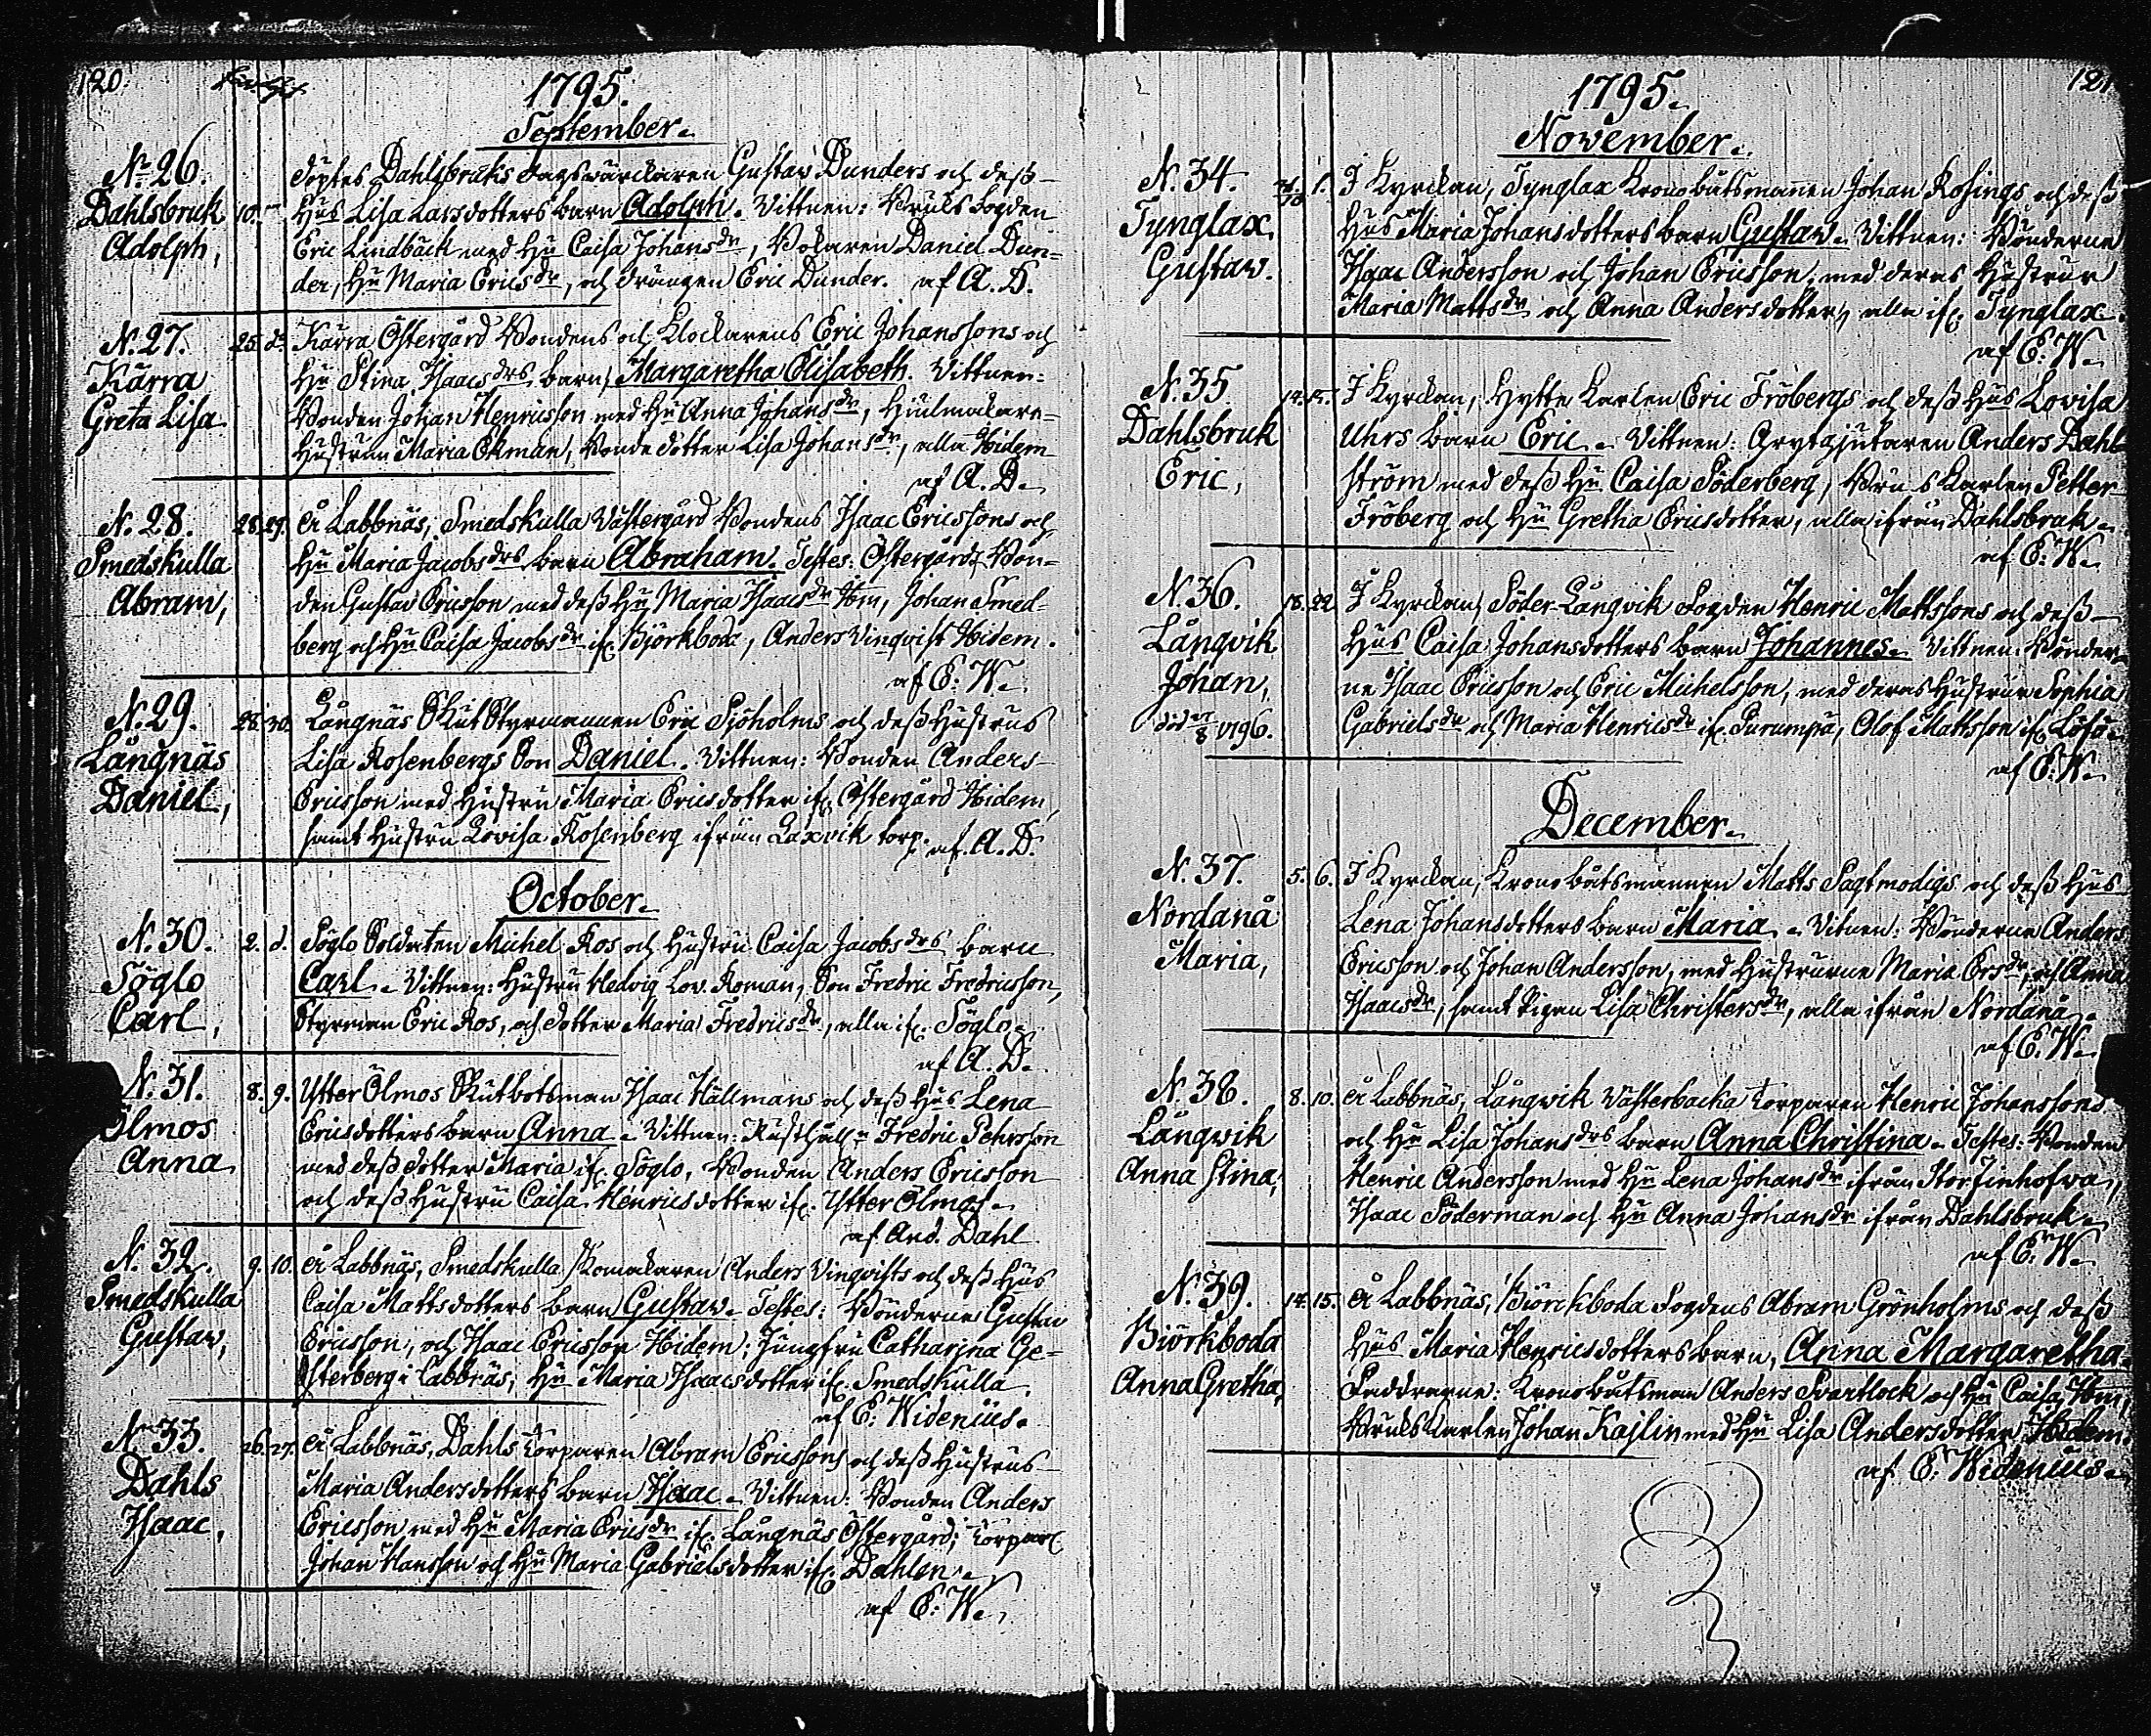 120.
1795.
September.
N. 26.
Dahlsbruk
Adolph,
10.
döptes Dahlsbruks dagswärckaren Gustav Dunders och deß
Hus Lisa Larsdotters barn Adolph. Vittnen: Bruksfogden
Eric Lindbäck med Hu Caisa Johansdr, Kolaren Daniel Dun=
der, Hu Maria Ericsdr, och drängen Eric Dunder. af A. D.
N. 27.
Kärra
Greta Lisa
25. do
Kärra Östergård Bondens och Klockarens Eric Johanssons och
Hu Stina Isaacsdrs barn Margaretha Elisabeth. Vittnen:
Bonden Johan Henricsson med Hu Anna Johansdr, Hjulmakare=
Hustrun Maria Ekman, Bonde dotter Lisa Johansdr, alla Ibidem
af A. D.
N. 28.
Smedskulla
Abram,
28. 29.
å Labbnäs, Smedskulla Västergård Bondens Isaac Ericssons och
Hu Maria Jacobsdrs barn Abraham. Testes: Östergårds Bon=
den Gustav Ericsson med deß Hu Maria Isaacsdr Ibm, Johan Smed=
berg och Hu Caisa Jacobsdr if. Björkboda, Anders Vinqvist Ibidem.
af E: W.
N. 29.
Långnäs
Daniel,
28. 30.
Långnäs Skut Styrmannen Eric Sjöholms och deß Hustrus
Lisa Rosenbergs Son Daniel. Vittnen: Bonden Anders
Ericsson med Hustru Maria Ericsdotter if. Östergård Ibidem,
samt Hustru Lovisa Rosenberg ifrån Laxvik torp. af. A. D.
October.
N. 30.
Söglo
Carl,
2. d.
Söglo Soldaten Michel Ros och Hustru Caisa Jacobsdrs barn
Carl. Vittnen: Hustru Hedvig Lov. Roman, Son Fredric Fredricsson,
Styrman Eric Ros, och dotter Maria Fredricsdr, alla if. Söglo.
af A. D.
N. 31.
Ölmos
Anna
8. 9.
Ytter Ölmos Skutbotsman Isaac Hällmans och deß Hus Lena
Ericsdotters barn Anna. Vittnen: Rusthåll: Fredric Pehrsson
med deß dotter Maria if. Söglo, Bonden Anders Ericsson
och deß Hustru Caisa Henricsdotter if. Ytter Ölmos.
af And. Dahl
N. 32.
Smedskulla
Gustav,
9. 10.
å Labbnäs, Smedskulla Skomakaren Anders Vinqvists och deß Hus
Caisa Mattsdotters barn Gustav. Testes: Bönderne Gustav
Ericsson, och Isaac Ericsson Ibidem; Jungfru Catharina Ge=
sterberg i Labbnäs; Hu Maria Isaacsdotter if. Smedskulla.
af E: Widenius.
N. 33.
Dahls
Isaac,
26. 27.
å Labbnäs, Dahls torparen Abram Ericssons och deß Hustrus
Maria Andersdotters barn Isaac. Vittnen: Bonden Anders
Ericsson med Hu Maria Ericsdr if. Långnäs Östergård; torpar
Johan Hansson och Hu Maria Gabrielsdotter if. Dahlen.
af E: W.
121
1795.
November.
N. 34.
Tynglax
Gustav.
1.
I Kyrckan, Tynglax Krono båtsmannen Johan Rosings och deß
Hus Maria Johansdotters barn Gustav. Vittnen: Bönderne
Isaac Andersson och Johan Ericsson med deras Hustrur
Maria Mattsdr och Anna Andersdotter, alla if. Tynglax.
af E: W.
N. 35
Dahlsbruk
Eric,
14. 15.
I Kyrckan, Hytte Karlen Eric Fröbergs och deß Hus Lovisa
Uhrs barn Eric. Vittnen: Grytgjutaren Anders Dahl
ström med deß Hu Caisa Söderberg, Bruks Karlen Petter
Fröberg och Hu Gretha Ericsdotter, alla ifrån Dahlsbruk.
af E: W.
N. 36.
Långvik
Johan,
8 1796.
18. 22
I Kyrckan, Söder Långvik Fogden Henric Mattssons och deß
Hus Caisa Johansdotters barn Johannes. Vittnen: Bönder=
ne Isaac Ericsson och Eric Michelsson, med deras Hustrur Sophia
Gabrielsdr och Maria Henricsdr if. Purumpä, Olof Mattsson if. Lösö.
af E: W.
December.
N. 37.
Nordanå
Maria,
5. 6.
I Kyrckan, Krono båtsmannen Matts Sagtmodigs och deß Hus
Lena Johansdotters barn Maria. Vitnen: Bönderne Anders
Ericsson och Johan Andersson, med Hustrurne Maria Ersdr, och Anna
Isaacsdr, samt Pigan Lisa Christersdr, alla ifrån Nordanå.
af E: W.
N. 38.
Långwik
Anna Stina,
8. 10.
å Labbnäs, Långwik Västerbacka torparen Henric Johanssons
och Hu Lisa Johansdrs barn Anna Christina. Testes: Bonden
Henric Andersson med Hu Lena Johansdr ifrån Storfinhofva,
Isaac Söderman och Hu Anna Johansdr ifrån Dahlsbruk.
af E: W.
N. 39.
Biörkboda
Anna Gretha,
14. 15.
å Labbnäs, Biörckboda Fogdens Abram Grönholms och deß
Hus Maria Henricsdotters barn, Anna Margaretha.
Faddrarne: Kronobåtsman Anders Svartlock och Hu Caisa Ibm,
Brukskarlen Johan Kajlin med Hu Lisa Andersdotter Ibidem.
af E: Widenius.